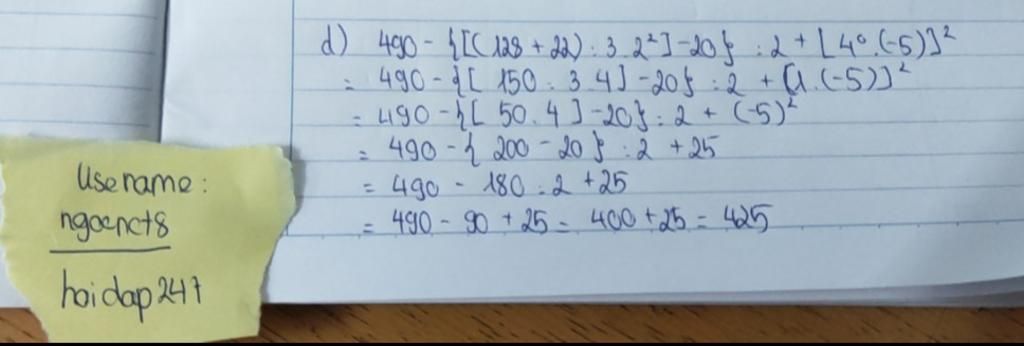 d) 490 - {[(128 + 22) : 3 . 2²] - 20} : 2 + [4⁰.(-5)]²
= 490 - {[ 150 : 3 . 4] - 20} : 2 + [1.(-5)]²
= 490 - {[ 50 . 4 ] - 20} : 2 + (-5)²
= 490 - { 200 - 20 } : 2 + 25
= 490 - 180 : 2 + 25
= 490 - 90 + 25 = 400 + 25 = 425
Usename :
ngocnct8
hoidap247